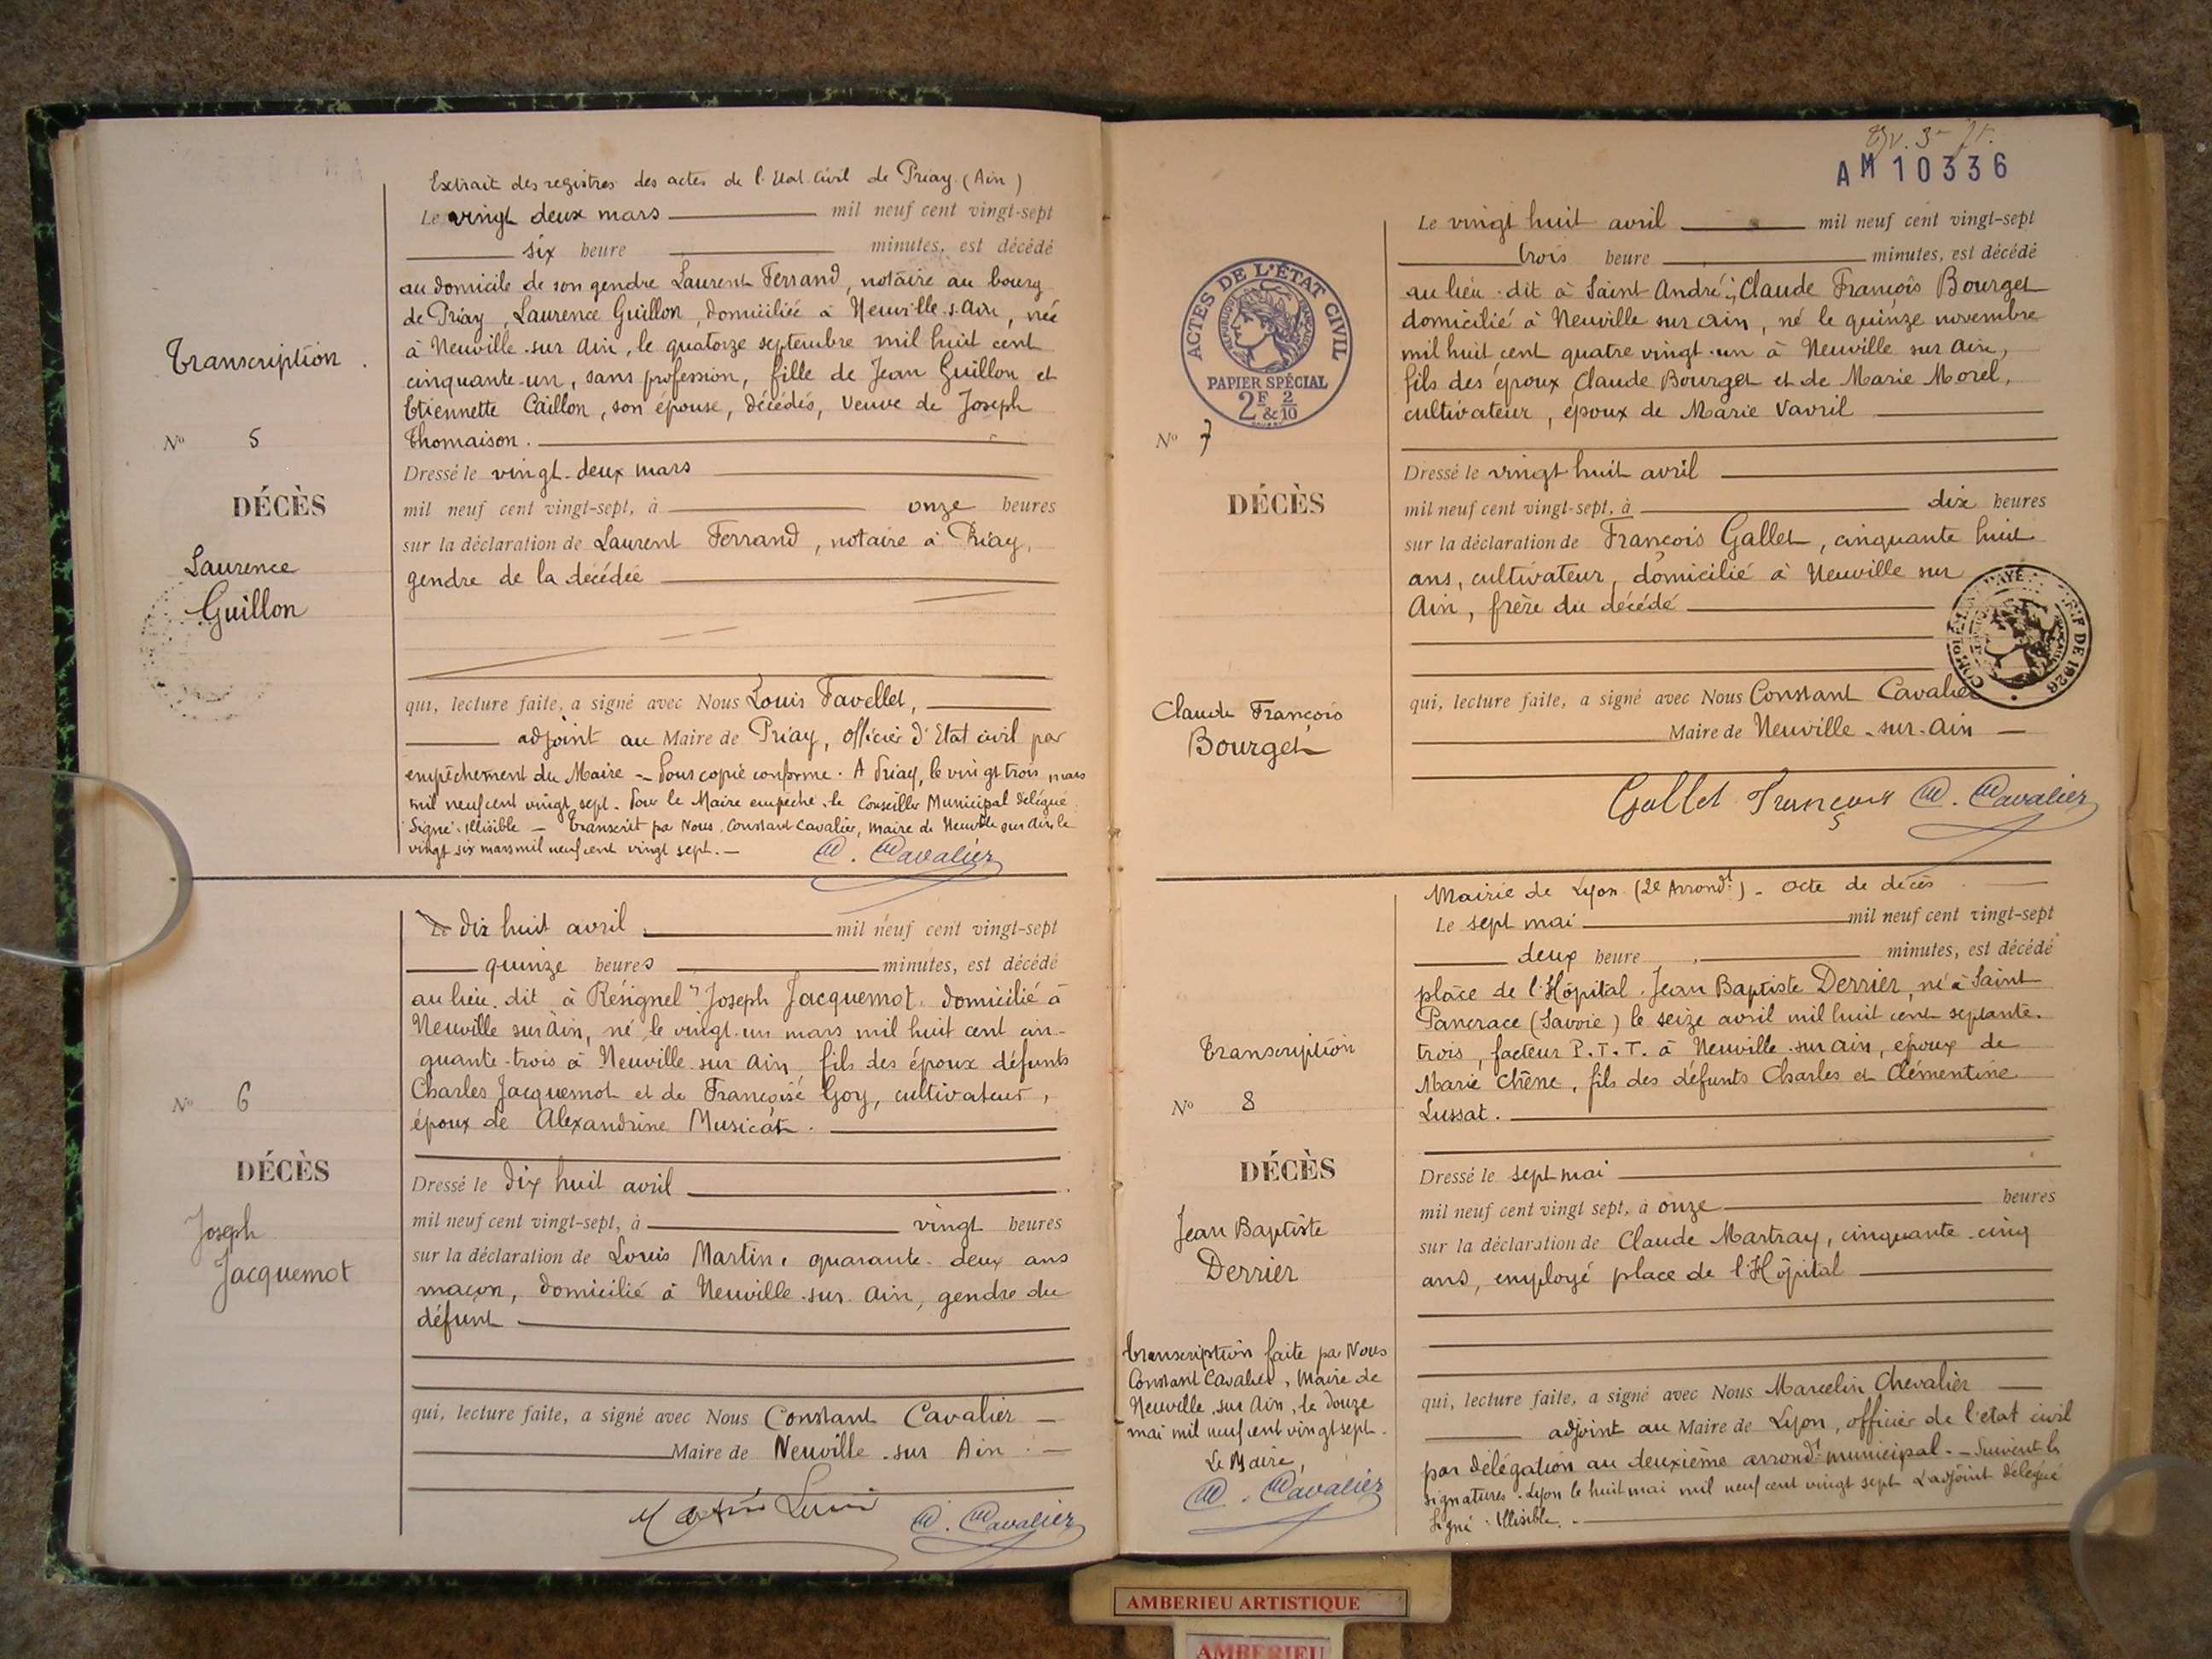 Extrait des registres des actes de l'Etat Civil de Priay (Ain)
Le vingt deux mars mil neuf cent vingt-sept
six heure minutes, est décédé
au domicile de son gendre Laurent Ferrand, notaire au bourg
de Priay, Laurence Guillon, domiciliée à Neuville s. Ain, née
à Neuville sur Ain, le quatorze septembre mil huit cent
cinquante-un, sans profession, fille de Jean Guillon et
Etiennette Caillon, son épouse, décédés, veuve de Joseph
Thomaison.
Transcription.
N° 5
DÉCÈS
Laurence
Guillon
Dressé le vingt-deux mars
mil neuf cent vingt-sept, à onze heures
sur la déclaration de Laurent Ferrand, notaire à Priay,
gendre de la décédée
qui, lecture faite, a signé avec Nous Louis Favellet,
adjoint au Maire de Priay, officier d'Etat civil par
empêchement du Maire - Pour copie conforme. A Priay, le vingt trois mars
mil neuf cent vingt sept. Pour le Maire empêché, le Conseiller Municipal délégué
Signé: Illisible - Transcrit par Nous, Constant Cavalier, maire de Neuville sur Ain le
vingt six mars mil neuf cent vingt sept. -
C. Cavalier
Le dix huit avril mil neuf cent vingt-sept
quinze heures minutes, est décédé
au lieu dit à Résignel" Joseph Jacquemot domicilié à
Neuville sur Ain, né le vingt-un mars mil huit cent cin-
quante-trois à Neuville sur Ain, fils des époux défunts
Charles Jacquemot et de Françoise Goy, cultivateur,
époux de Alexandrine Musicat.
N° 6
DÉCÈS
Joseph
Jacquemot
Dressé le dix huit avril
mil neuf cent vingt-sept, à vingt heures
sur la déclaration de Louis Martin, quarante-deux ans
maçon, domicilié à Neuville sur Ain, gendre du
défunt
qui, lecture faite, a signé avec Nous Constant Cavalier
Maire de Neuville sur Ain
Martin Louis C. Cavalier
AM 10336
ACTES DE L'ÉTAT CIVIL
RÉPUBLIQUE FRANÇAISE
PAPIER SPÉCIAL
2F & 2/10
Le vingt huit avril mil neuf cent vingt-sept
trois heure minutes, est décédé
au lieu-dit à Saint André", Claude François Bourget
domicilié à Neuville sur Ain, né le quinze novembre
mil huit cent quatre vingt-un à Neuville sur Ain,
fils des époux Claude Bourget et de Marie Morel,
cultivateur, époux de Marie Vavril
N° 7
DÉCÈS
Claude François
Bourget
Dressé le vingt huit avril
mil neuf cent vingt-sept, à dix heures
sur la déclaration de François Gallet, cinquante huit
ans, cultivateur, domicilié à Neuville sur
Ain, frère du décédé
DE 1926
qui, lecture faite, a signé avec Nous Constant Cavalier
Maire de Neuville-sur-Ain
Gallet François C. Cavalier
Mairie de Lyon (2e Arrondt) - Acte de décès
Le sept mai mil neuf cent vingt-sept
deux heure minutes, est décédé
place de l'Hôpital Jean Baptiste Derrier, né à Saint
Pancrace (Savoie) le seize avril mil huit cent septante-
trois, facteur P.T.T. à Neuville sur Ain, époux de
Marie Chêne, fils des défunts Charles et Clémentine
Lussat.
Transcription
N° 8
DÉCÈS
Jean Baptiste
Derrier
Dressé le sept mai
mil neuf cent vingt sept, à onze heures
sur la déclaration de Claude Martray, cinquante-cinq
ans, employé place de l'Hôpital
Transcription faite par Nous
Constant Cavalier, Maire de
Neuville sur Ain, le douze
mai mil neuf cent vingt sept.
Le Maire,
C. Cavalier
qui, lecture faite, a signé avec Nous Marcelin Chevalier
adjoint au Maire de Lyon, officier de l'état civil
par délégation au deuxième arrondt municipal. - Suivent les
signatures. Lyon le huit mai mil neuf cent vingt sept L'adjoint délégué
Signé: Illisible. -
AMBERIEU ARTISTIQUE
AMBERIEU